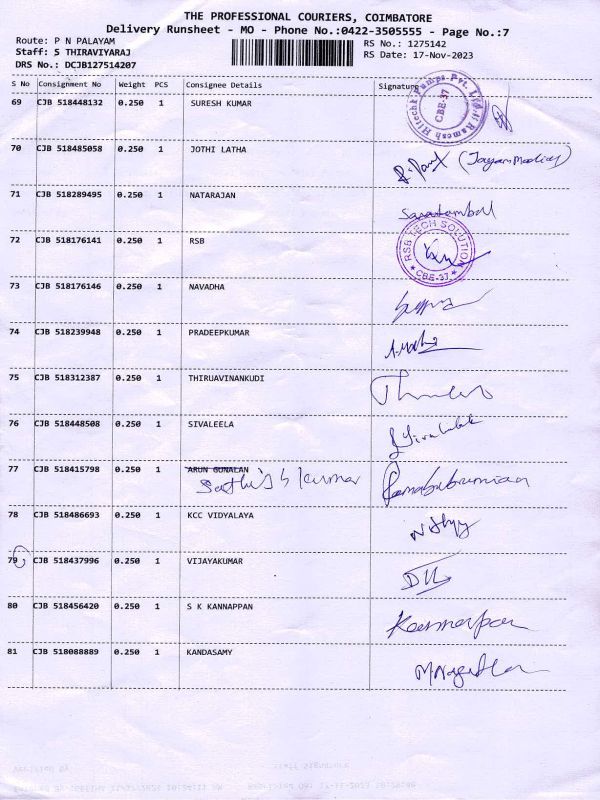 THE PROFESSIONAL COURIERS, COIMBATORE
Delivery Runsheet - MO - Phone No.:0422-3505555 - Page No.:7
Route: P N PALAYAM
Staff: S THIRAVIYARAJ
DRS No.: DCJB127514207
RS No.: 1275142
RS Date: 17-Nov-2023
S No Consignment No Weight PCS Consignee Details Signature
69 CJB 518448132 0.250 1 SURESH KUMAR
Ramesh Hitech Pumps Pvt. Ltd. CBE-37
70 CJB 518485058 0.250 1 JOTHI LATHA
71 CJB 518289495 0.250 1 NATARAJAN
72 CJB 518176141 0.250 1 RSB
RSB TECH SOLUTION ★ CBE-37 ★
73 CJB 518176146 0.250 1 NAVADHA
74 CJB 518239948 0.250 1 PRADEEPKUMAR
75 CJB 518312387 0.250 1 THIRUAVINANKUDI
76 CJB 518448508 0.250 1 SIVALEELA
77 CJB 518415798 0.250 1 ARUN GUNALAN
Sathish kumar
78 CJB 518486693 0.250 1 KCC VIDYALAYA
79 CJB 518437996 0.250 1 VIJAYAKUMAR
80 CJB 518456420 0.250 1 S K KANNAPPAN
81 CJB 518088889 0.250 1 KANDASAMY